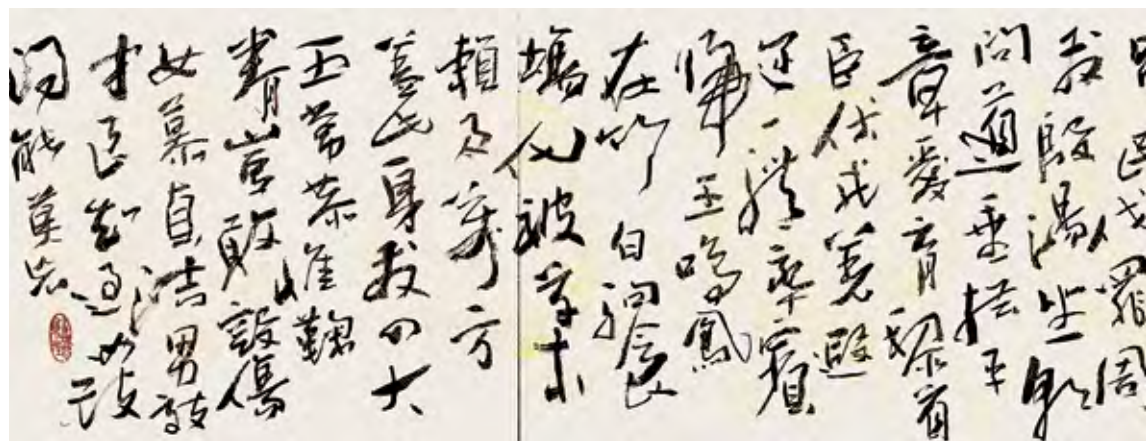 民伐罪周
發殷湯坐朝
問道垂拱平
章愛育黎首
臣伏戎羌遐
迩一體率賓
歸王鳴鳳
在竹白駒食
場化被草木
賴及萬方
蓋此身发四大
五常恭惟鞠
養豈敢毀傷
女慕貞洁男效
才良知過必改
得能莫忘